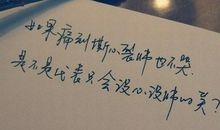 如果痛到撕心裂肺也不哭
是不是代表只会没心没肺的笑?